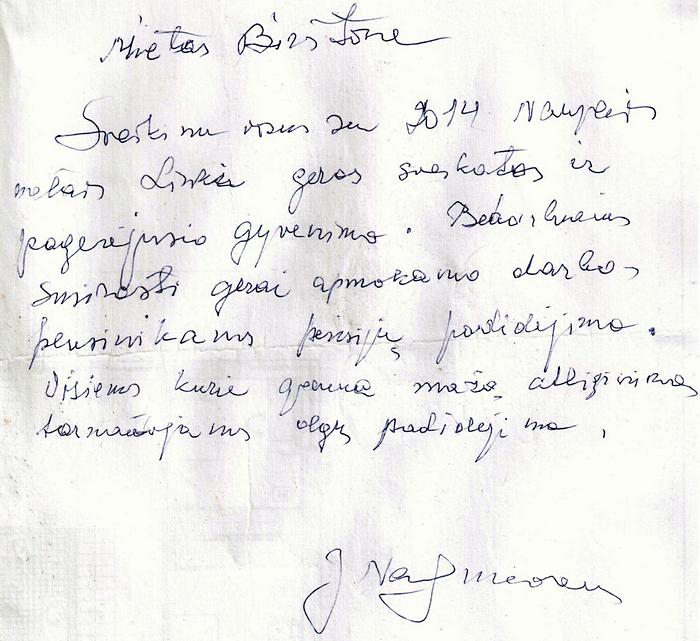 Mietas Birštone
Sveikinu visus su 2014 Naujais
metais Linkiu geros sveikatos ir
pagerėjusio gyvenimo. Bedarbiams
susirasti gerai apmokamo darbo
pensinikams pensijų padidėjimo.
Visiems kurie gauna mažą atliginimą
algų padidėjimo,
J